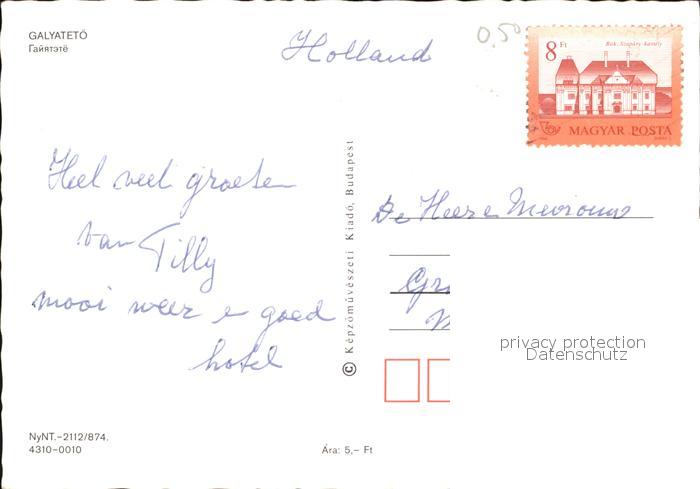 GALYATETŐ
Гайятэтё
Holland
0.50
8 Ft
Bük. Szapáry-kastély
MAGYAR POSTA
Heel veel groeten
van Tilly
mooi weer e goed
hotel
© Képzőművészeti Kiadó, Budapest
De Heer e
Gr
privacy protection
Datenschutz
NyNT.–2112/874.
4310–0010
Ára: 5,– Ft